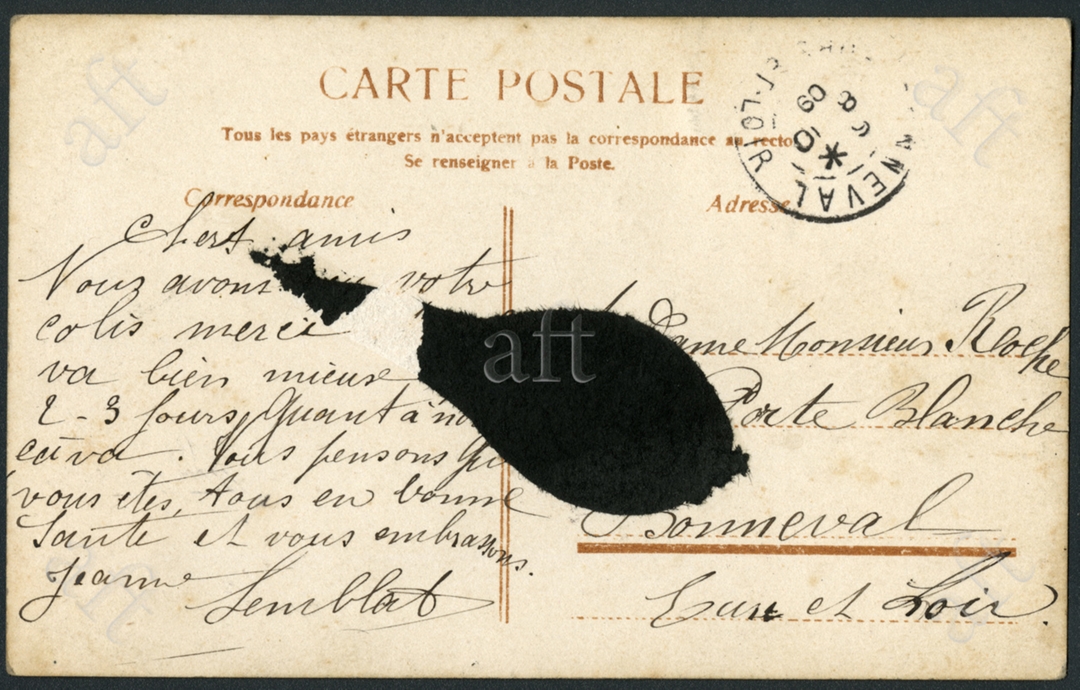 CARTE POSTALE
Tous les pays étrangers n'acceptent pas la correspondance au recto
Se renseigner à la Poste.
Correspondance
Adresse
NNEVAL
T-LOIR
10
8
09
Chers amis
Nous avons votre
colis merci
va bien mieux
2-3 jours, Quant à
ça va. Nous pensons
vous êtes, tous en bonne
santé et vous embrassons.
Jeanne Semblat
Dame Monsieur Roche
Porte Blanche
Bonneval
Eure et Loir.
aft
aft
aft
aft
aft